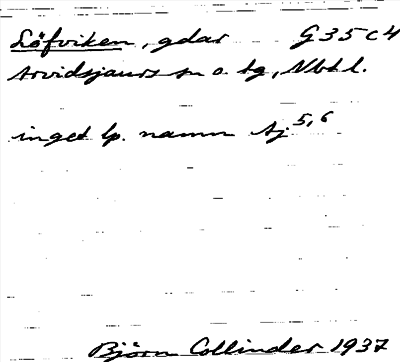 Löfviken, gdar G35c4
Arvidsjaurs sn o. tg, Nbtl.
inget lp. namn Aj 5,6
Björn Collinder 1937